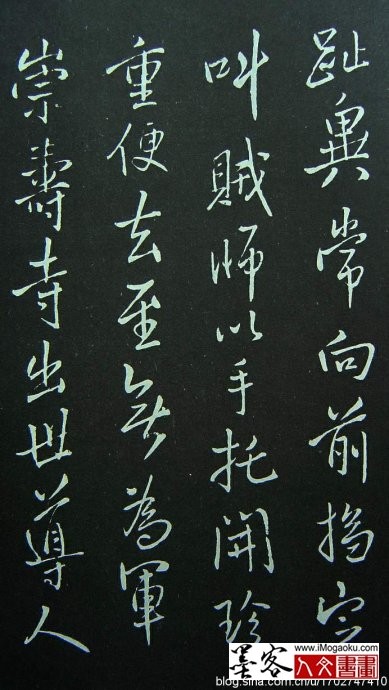 趾異常向前搊定
叫賊師以手托開珍
重便去至無為軍
崇壽寺出世導人
墨客
www.iMogaoku.com
人文書畫
blog.sina.com.cn/u/1702747410